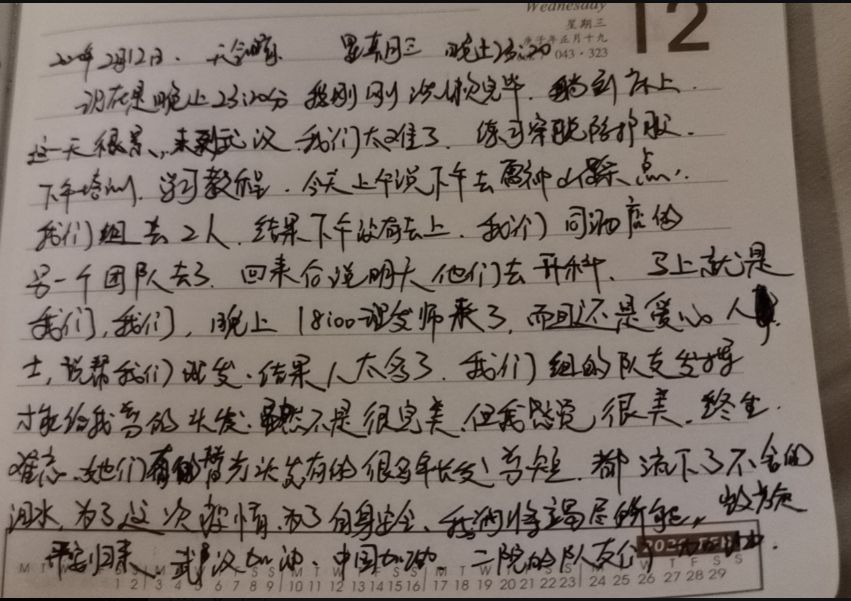 Wednesday
星期三
庚子年正月十九
12
043·323
2020年2月12日. 星期三 晚上23:20
现在是晚上23:20分 我刚刚洗漱完毕. 躺到床上.
这一天很累, 来到武汉 我们太难了. 练习穿脱防护服.
下午培训. 学习教程. 今天上午说下午去雷神山 点.
我们组去2人. 结果下午没有去上. 我们同酒店的
另一个团队去了. 回来后说明天他们去开科. 马上就是
我们, 我们, 晚上18:00理发师来了, 而且还是爱心人
士, 说帮我们理发. 结果人太多了. 我们组的队友发挥
才能给我剪的头发. 虽然不是很完美. 但我感觉很美. 终生
难忘. 她们有的 头发有的很多年长发剪短. 都流下了不舍的
泪水, 为了这次疫情. 为了自身安全. 我们将竭尽所能,
平安归来. 武汉加油. 中国加油. 二院的队友们
M T W S S M T W T F S S M T W T F S S M T W T F S S
1 2 3 6 7 8 9 10 11 12 13 14 15 16 17 18 19 20 21 22 23 24 25 26 27 28 29